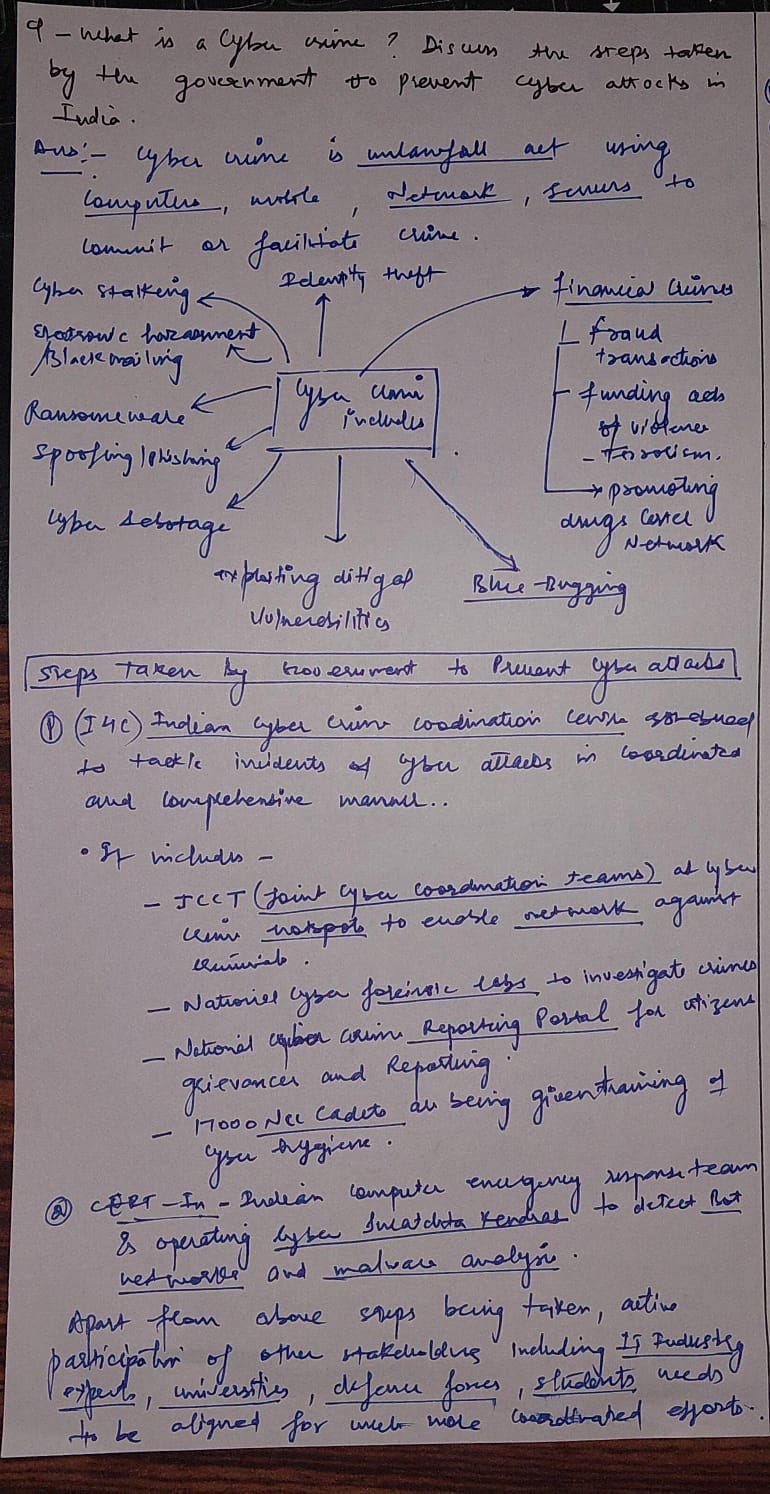 Q - What is a Cyber crime ? Discuss the steps taken
by the government to prevent cyber attacks in
India.
Ans:- Cyber crime is unlawfull act using
Computers, mobile, Network, servers to
commit or facilitate crime.
Identity theft
Cyber stalking
Electronic harassment
/Blackmailing
Ransomeware
Spoofing/phishing
Cyber Sebotage
Cyber Crime
includes
Financial Crimes
Fraud
transactions
- funding acts
of violence
- Terrorism.
promoting
drugs Cartel
Network
exploiting ditigal
vulnerabilities
Blue-Bugging
Steps Taken by Government to Prevent Cyber attacks
① (I4C) Indian Cyber Crime coodination Centre
to tackle incidents of Cyber attacks in coordinated
and comprehensive manner..
• It includes -
- JCCT (Joint Cyber Coordination teams) at Cyber
crime hotspots to enable network against
criminals.
- National Cyber foreinsic labs to investigate crimes
- National cyber crime Reporting Portal for citizens
grievances and Reporting.
- 17000 Ncc Cadets are being given training of
Cyber hygiene.
② CERT-In - Indian Computer emergency response team
is operating Cyber Swatchta Kendras to detect Bot
networks and malware analysis.
Apart from above steps being taken, active
participation of other stakeholders including IT Industry
experts, universities, defence forces, students needs
to be aligned for much more coordinated efforts..